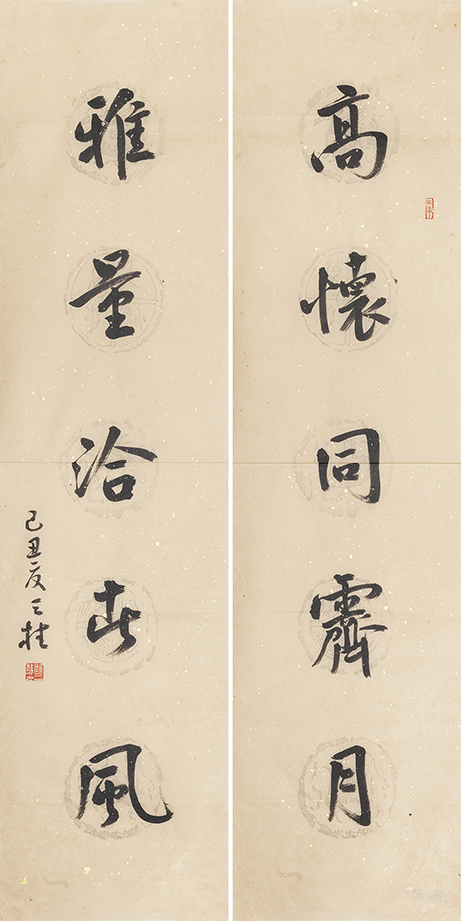 高懷同霽月
雅量洽春風
己丑夏